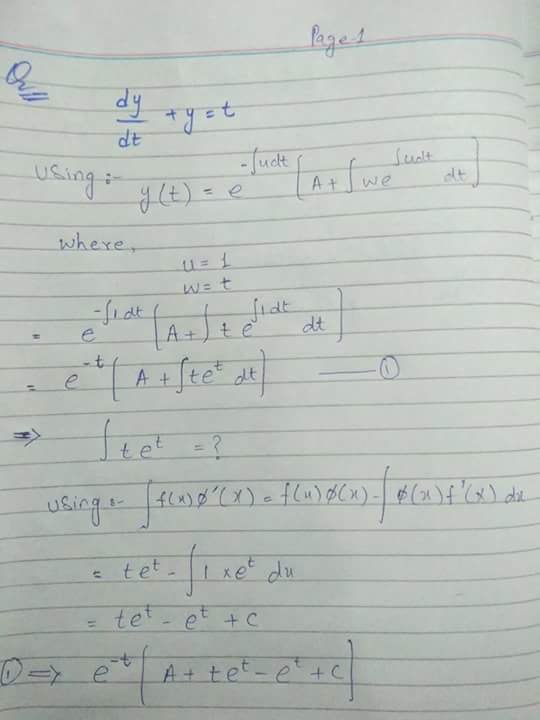 Page-1
Q
dy/dt + y = t
Using :- y(t) = e^{-∫udt} [A + ∫ w e^{∫udt} dt]
where,
u = 1
w = t
= e^{-∫1dt} [A + ∫ t e^{∫1dt} dt]
= e^{-t} [A + ∫ t e^t dt] —— ①
⇒ ∫ t e^t = ?
using :- ∫ f(x) φ'(x) = f(x) φ(x) - ∫ φ(x) f'(x) dx
= t e^t - ∫ 1 × e^t du
= t e^t - e^t + C
① ⇒ e^{-t} [A + t e^t - e^t + C]